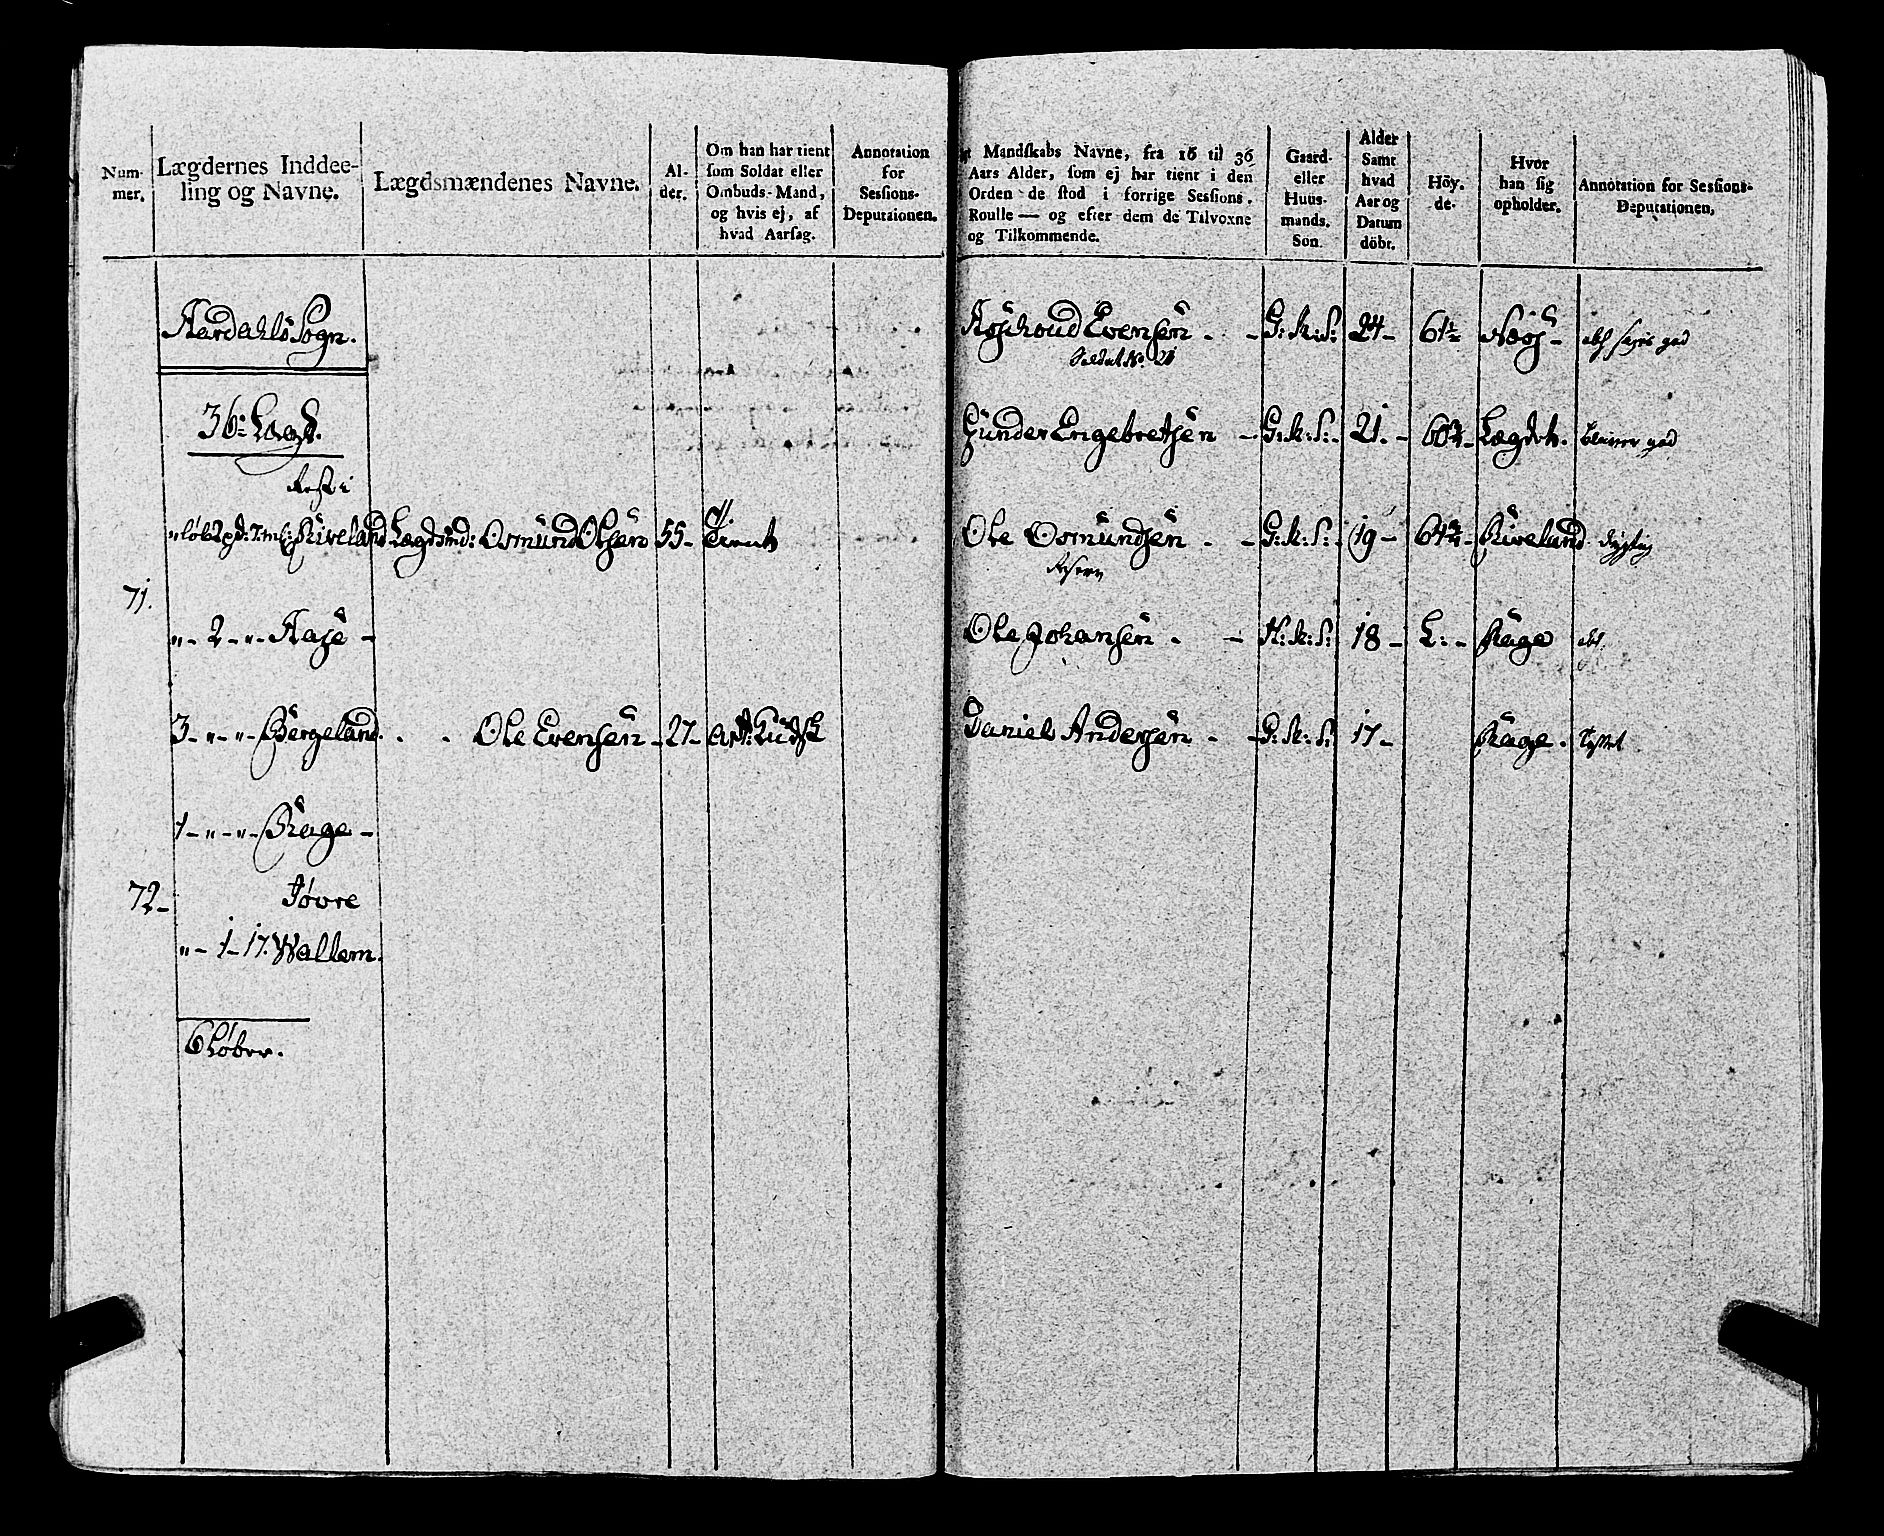 Num-
mer.
Lægdernes Inddee-
ling og Navne.
Lægdsmændenes Navne.
Al-
der.
Om han har tient
som Soldat eller
Ombuds-Mand,
og hvis ej, af
hvad Aarsag.
Annotation
for
Sessions-
Deputaionen.
Aardahls Sogn.
36: Lægd.
Rest i
Riveland Lægdsmd: Osmund Olsen 55- Tient
71.
„- 2 - „-
3 - „ - „ - Bergeland. . . Ole Evensen - 27-
1 - „ - „ - Rage -
72 - Tøvre
„ - 1 - 17. Wallem.
6 Løber.
Mandskabs Navne, fra 16 til 36
Aars Alder, som ej har tient i den
Orden de stod i forrige Sessions-
Roulle — og efter dem de Tilvoxne
og Tilkommende.
Gaard-
eller
Huus-
mands-
Søn.
Alder
Samt
hvad
Aar og
Datum
döbt.
Höy-
de-
Hvor
han sig
opholder.
Annotation for Sessions-
Deputationen,
Evensen . - G: K: S: 24-
Soldat No. 21
Gunder Engebretsen - G: K: S: - 21. - Lægdet.
Ole Osmundsen . - G: K: S: - 19 - Riveland dygtig
Reserv
Ole Johansen . - H: K: S: 18 - L: - Rage
Daniel Andersen . - G: K: S: 17 - Rage .